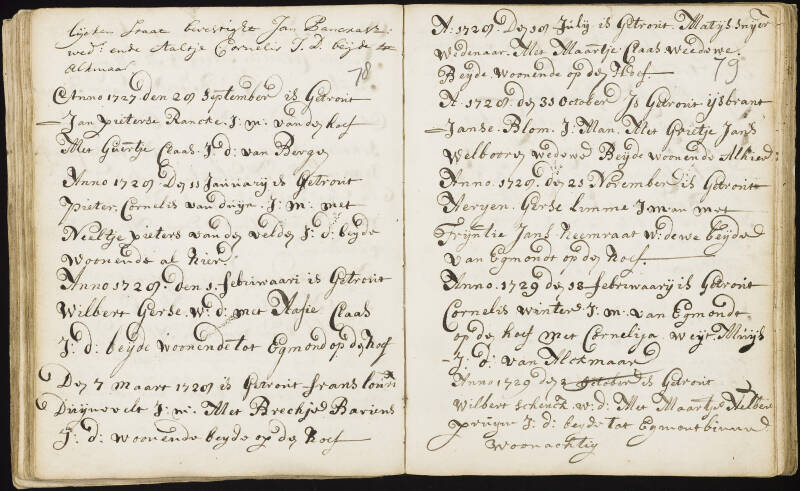 lijsten staat bevestight Jan Pancrasz:
wed: ende Aaltje Cornelis J.d. beijde te
Alkmaar
78
Anno 1727 den 28 September is Getrout
Jan pieterse Rancke J: m: vande hoef
Met Guertje Claas J: d: van Berge
Anno 1728 De 11 Januarij is Getrout
Pieter Cornelis van duijn J: m: met
Neeltje pieters vande velde J: d: beijde
woonende al hier
Anno 1728 den 1 febriwaari is Getrout
Wilbert Gerse w: d: met Claas
J: d: beijde woonende tot Egmond op de hoef
De 7 maart 1728 is Getrout frans louri
Duijnevelt J: m: Met Breckje Bariens
J: d: woonende beijde op de hoef
A: 1728 De 18 Julij is Getrout Matijs Snijer
Wedenaar Met Maartje Claas weedewe
Beijde woonende op de Hoef
79
A: 1728 de 31 October Is Getrout ijsbrant
Janse Blom J: Man Met Grietje Jans
Welboore wedewe Beijde woonende Alhier
Anno 1728 de 21 November is Getrout
Aerjen Gerse Limme J man met
Trijntie Jans Heemraat w: dewe beijde
van Egmondt op de hoef
Anno 1729 de 18 febriwaarij is Getrout
Cornelis winter J: m: van Egmondt
op de hoef met Cornelija weijt Mrijs
J: d: van Alckmaar
Anno 1729 de 2 October is Getrout
Wilbert schenck w: d: Met Maartje Ailbers
pruijm J: d: beijde tat Egmont binne
Woonachtig